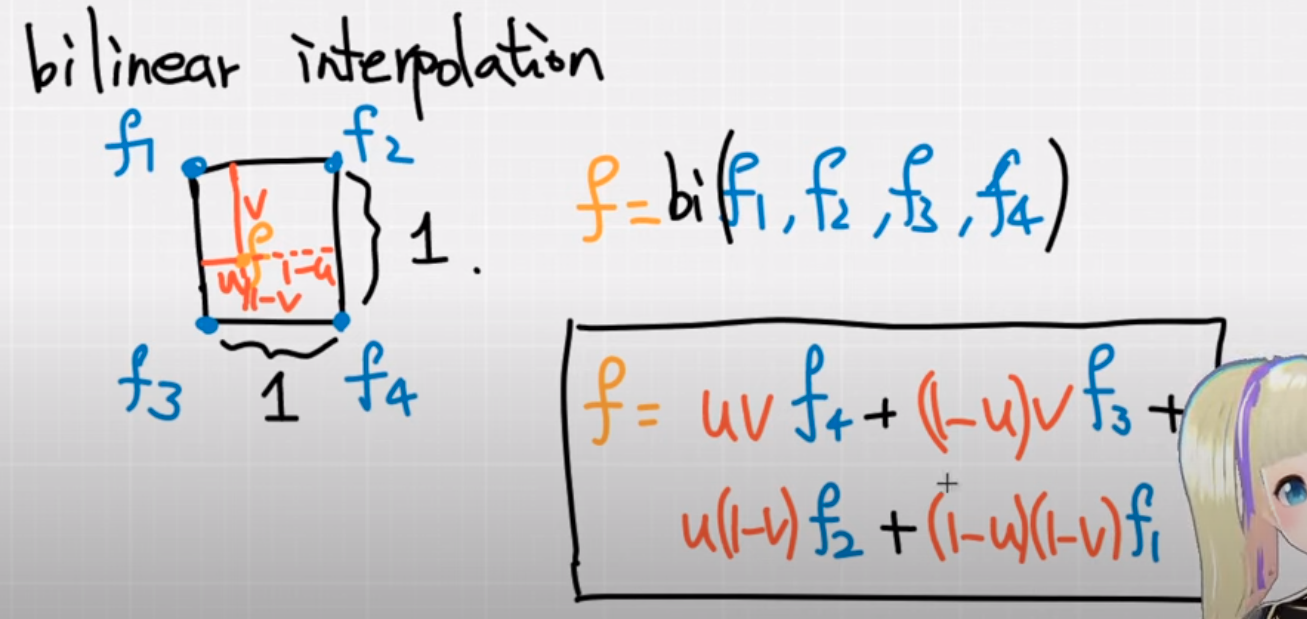 bilinear interpolation
f1 f2
v
f
u 1-u
1-v
1.
f3 1 f4
f = bi(f1, f2, f3, f4)
f = uv f4 + (1-u)v f3 +
u(1-v) f2 + (1-u)(1-v) f1